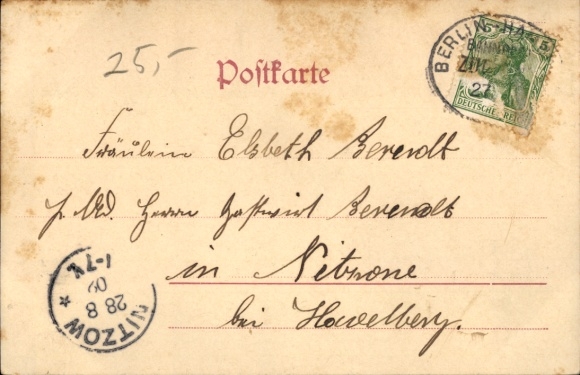 25,-
Postkarte
BERLIN
27
5
DEUTSCHES REICH
Fräulein Elsbeth Berendt
Herrn Gastwirt Berendt
in Nitzone
bei Havelberg.
NITZOW
28 8
09
1-7V.